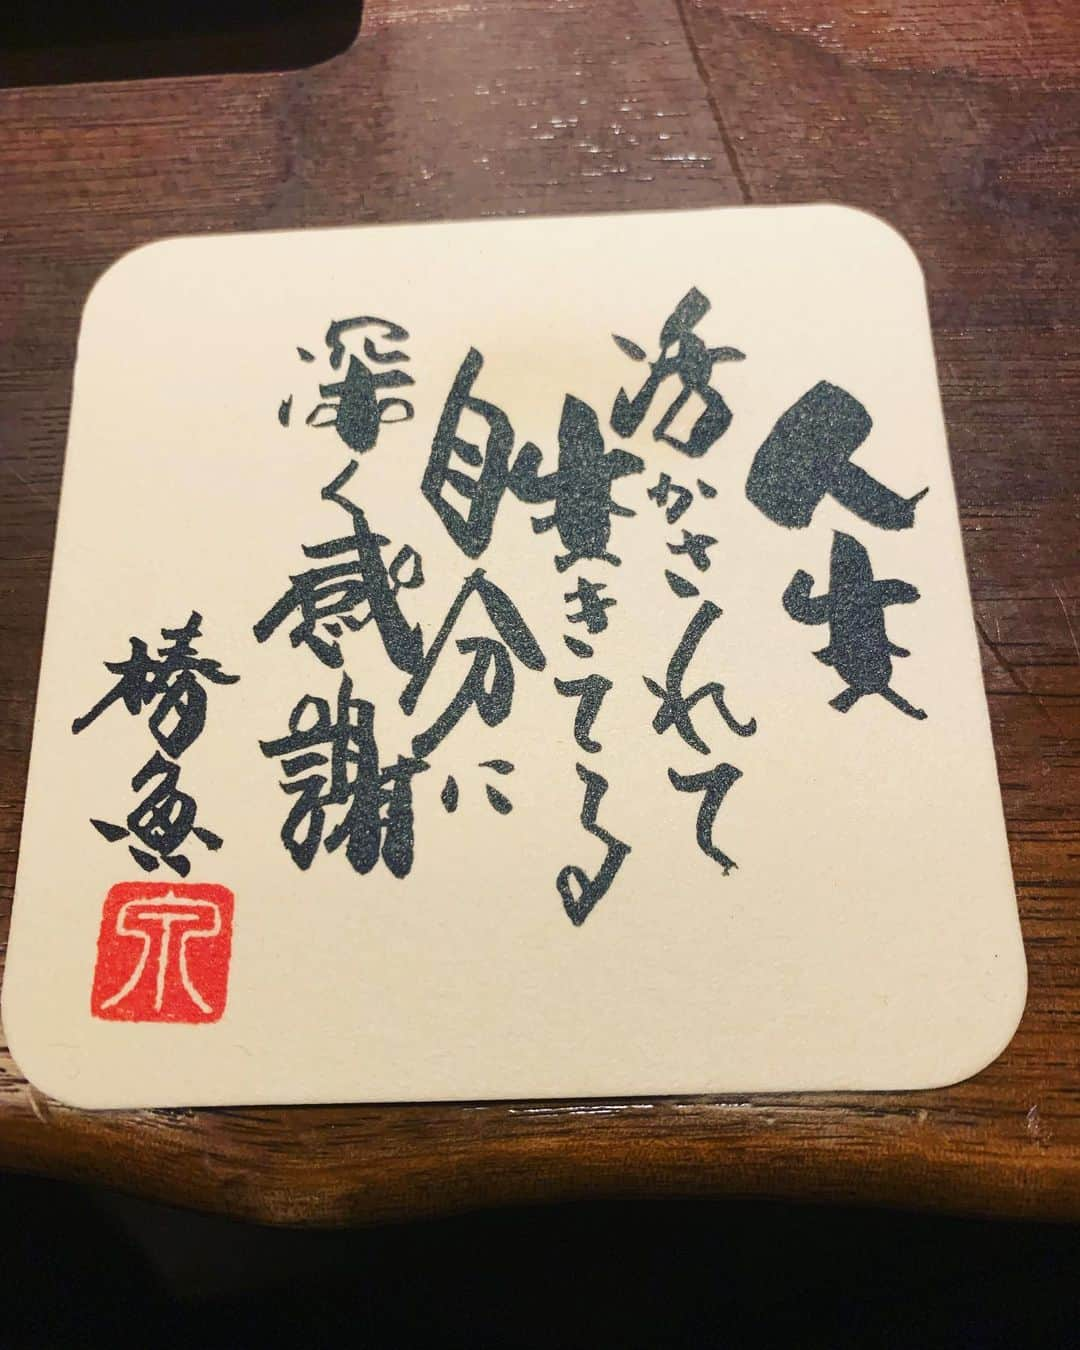 人生
活かされて
生きてる
自分に
深く感謝
椿魚